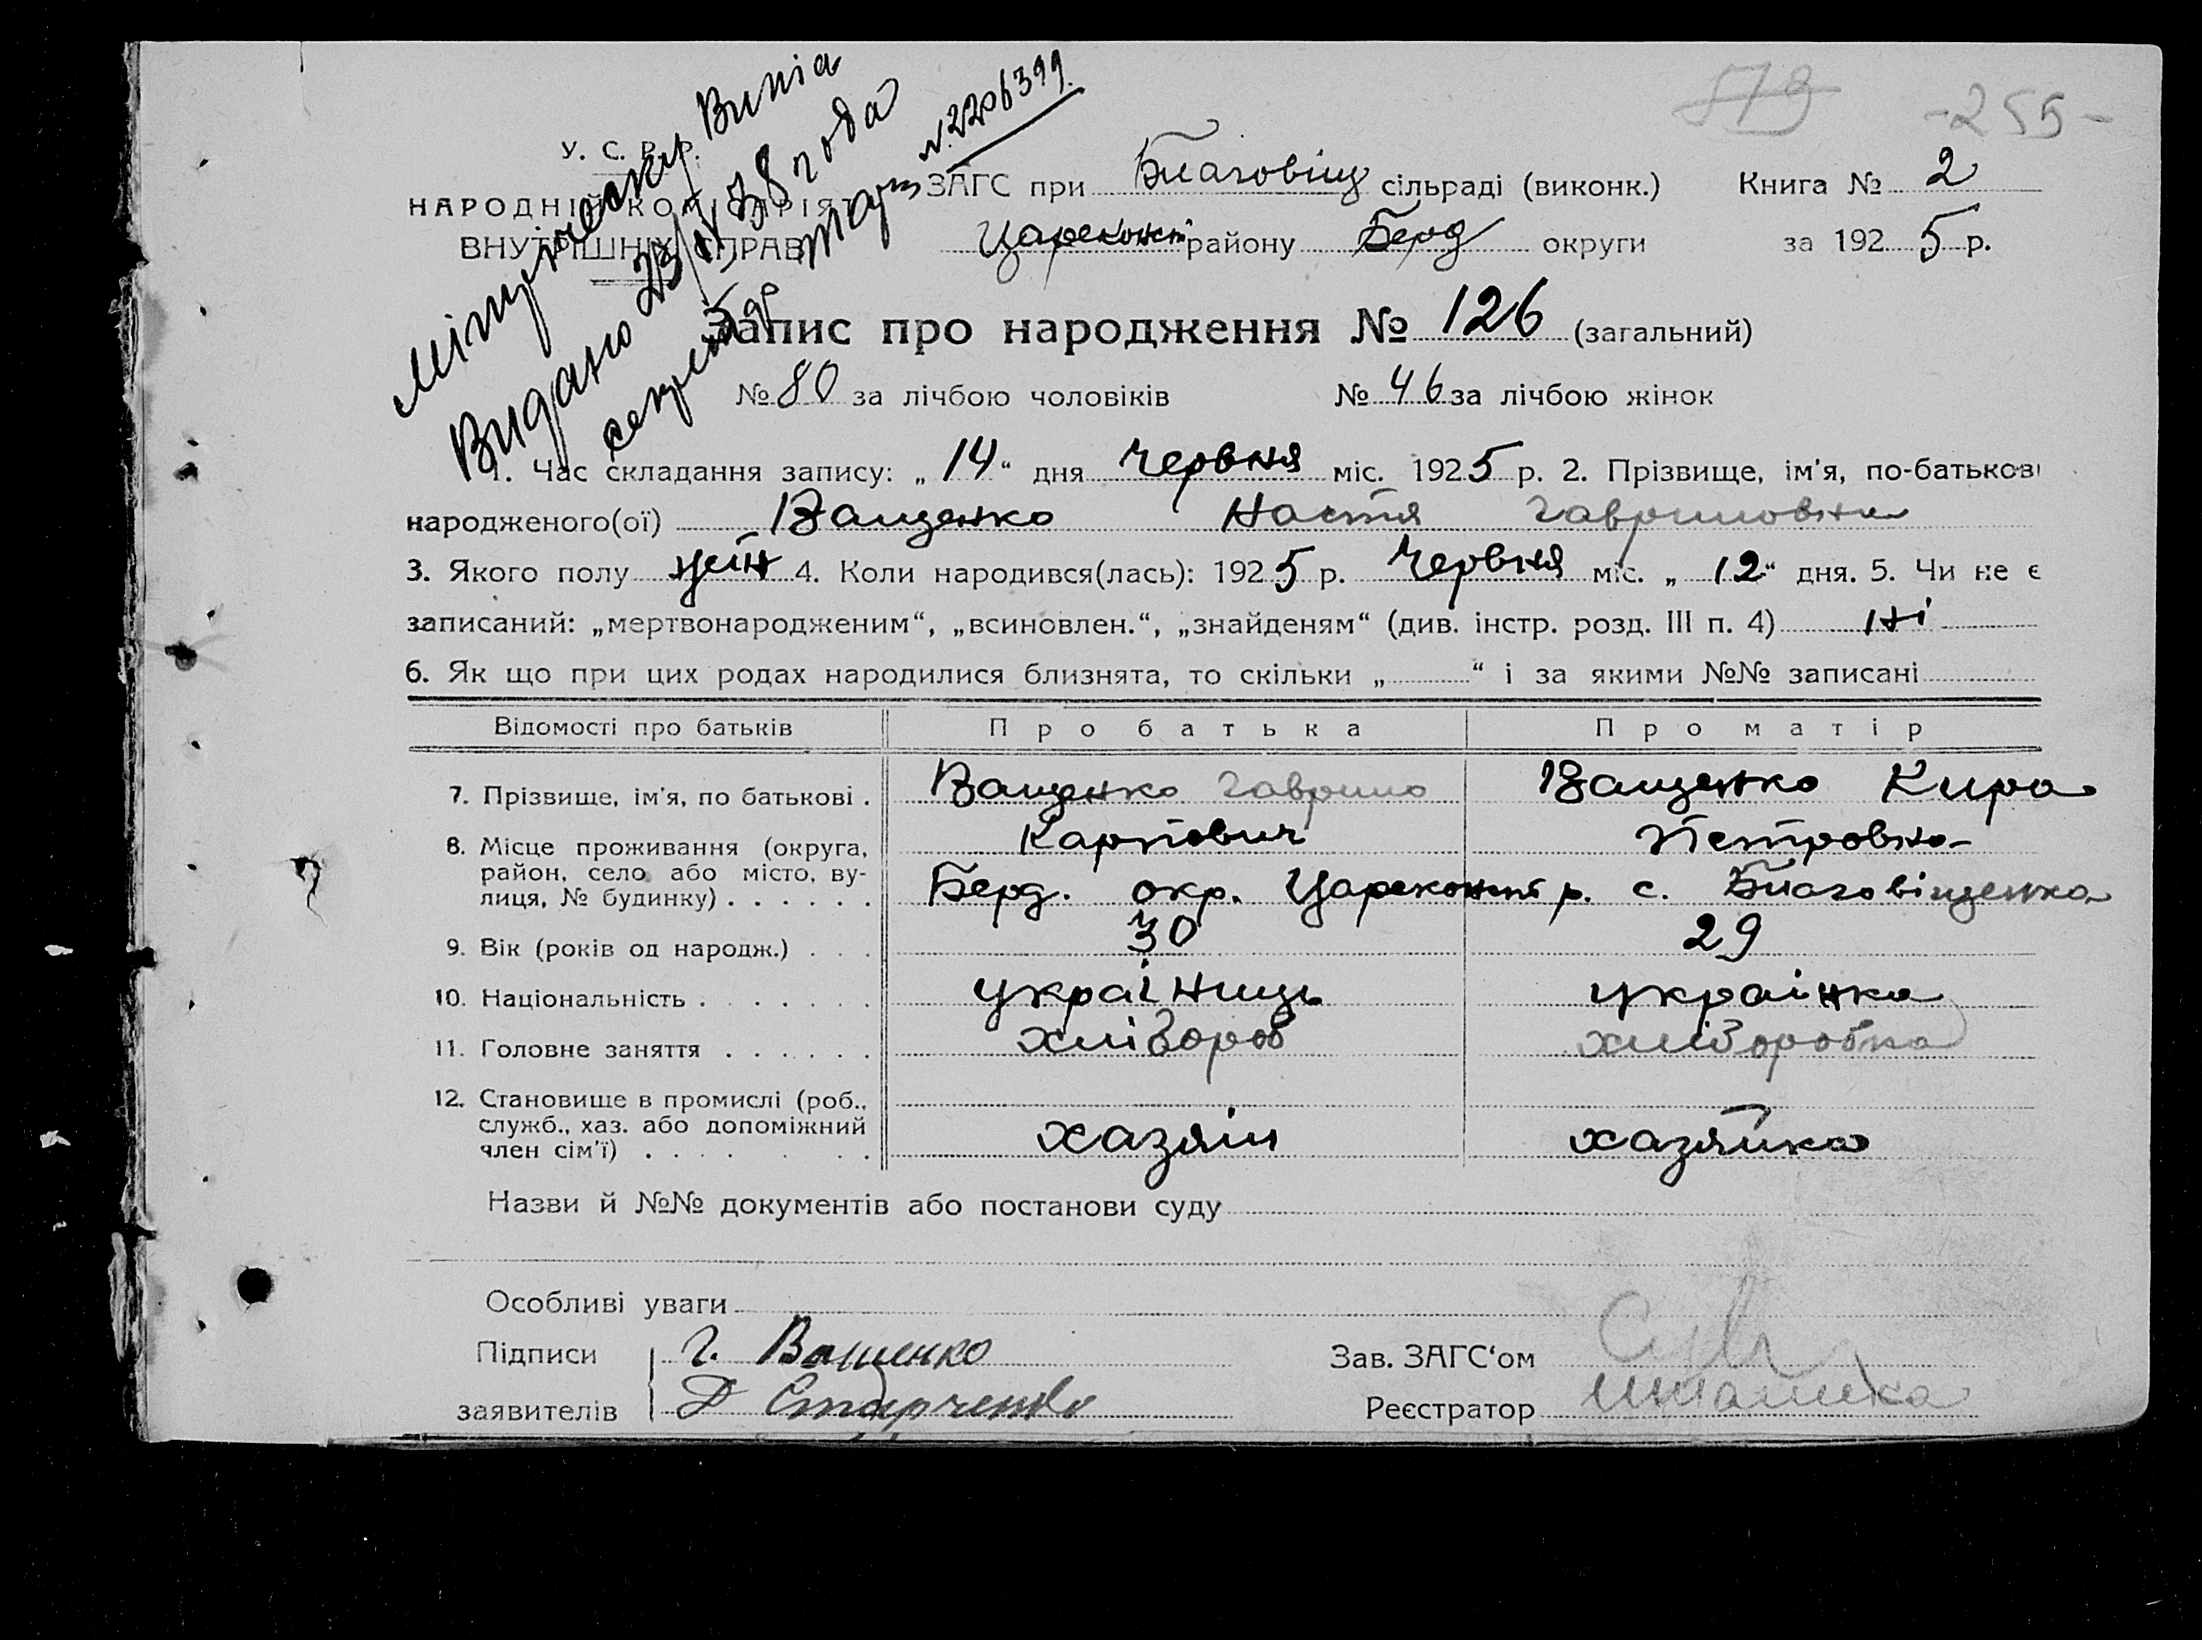 519 -255-
Випіа
Видано 23/IV 38 года
№ 2206399.
У. С. Р. Р.
НАРОДНІЙ КОМІСАРІЯТ
ВНУТРІШНІХ СПРАВ
ЗАГС при Благовіщ сільраді (виконк.) Книга № 2
Цареконст району Берд округи за 1925 р.
Запис про народження № 126 (загальний)
№ 80 за лічбою чоловіків № 46 за лічбою жінок
1. Час складання запису: „14“ дня червня міс. 1925 р. 2. Прізвище, ім'я, по-батькові
народженого(ої) Ващенко Настя Гавриловна
3. Якого полу жін 4. Коли народився(лась): 1925 р. Червня міс. „12“ дня. 5. Чи не є
записаний: „мертвонародженим“, „всиновлен.“, „знайденям“ (див. інстр. розд. III п. 4) ні
6. Як що при цих родах народилися близнята, то скільки „ “ і за якими №№ записані
Відомості про батьків Про батька Про матір
7. Прізвище, ім'я, по батькові . Ващенко Гаврило Карпович Ващенко Кира Петровна
8. Місце проживання (округа,
район, село або місто, ву-
лиця, № будинку) . . . . . . Берд. окр. Цареконст р. с. Благовіщенка
9. Вік (років од народж.) . . . 30 29
10. Національність . . . . . . . украінець украінка
11. Головне заняття . . . . . . хлібороб хліборобка
12. Становище в промислі (роб.,
служб., хаз. або допоміжний
член сім'ї) . . . . . . . хазяін хазяйка
Назви й №№ документів або постанови суду
Особливі уваги
Підписи Г. Ващенко Зав. ЗАГС‘ом
заявителів Д Старченко Реєстратор